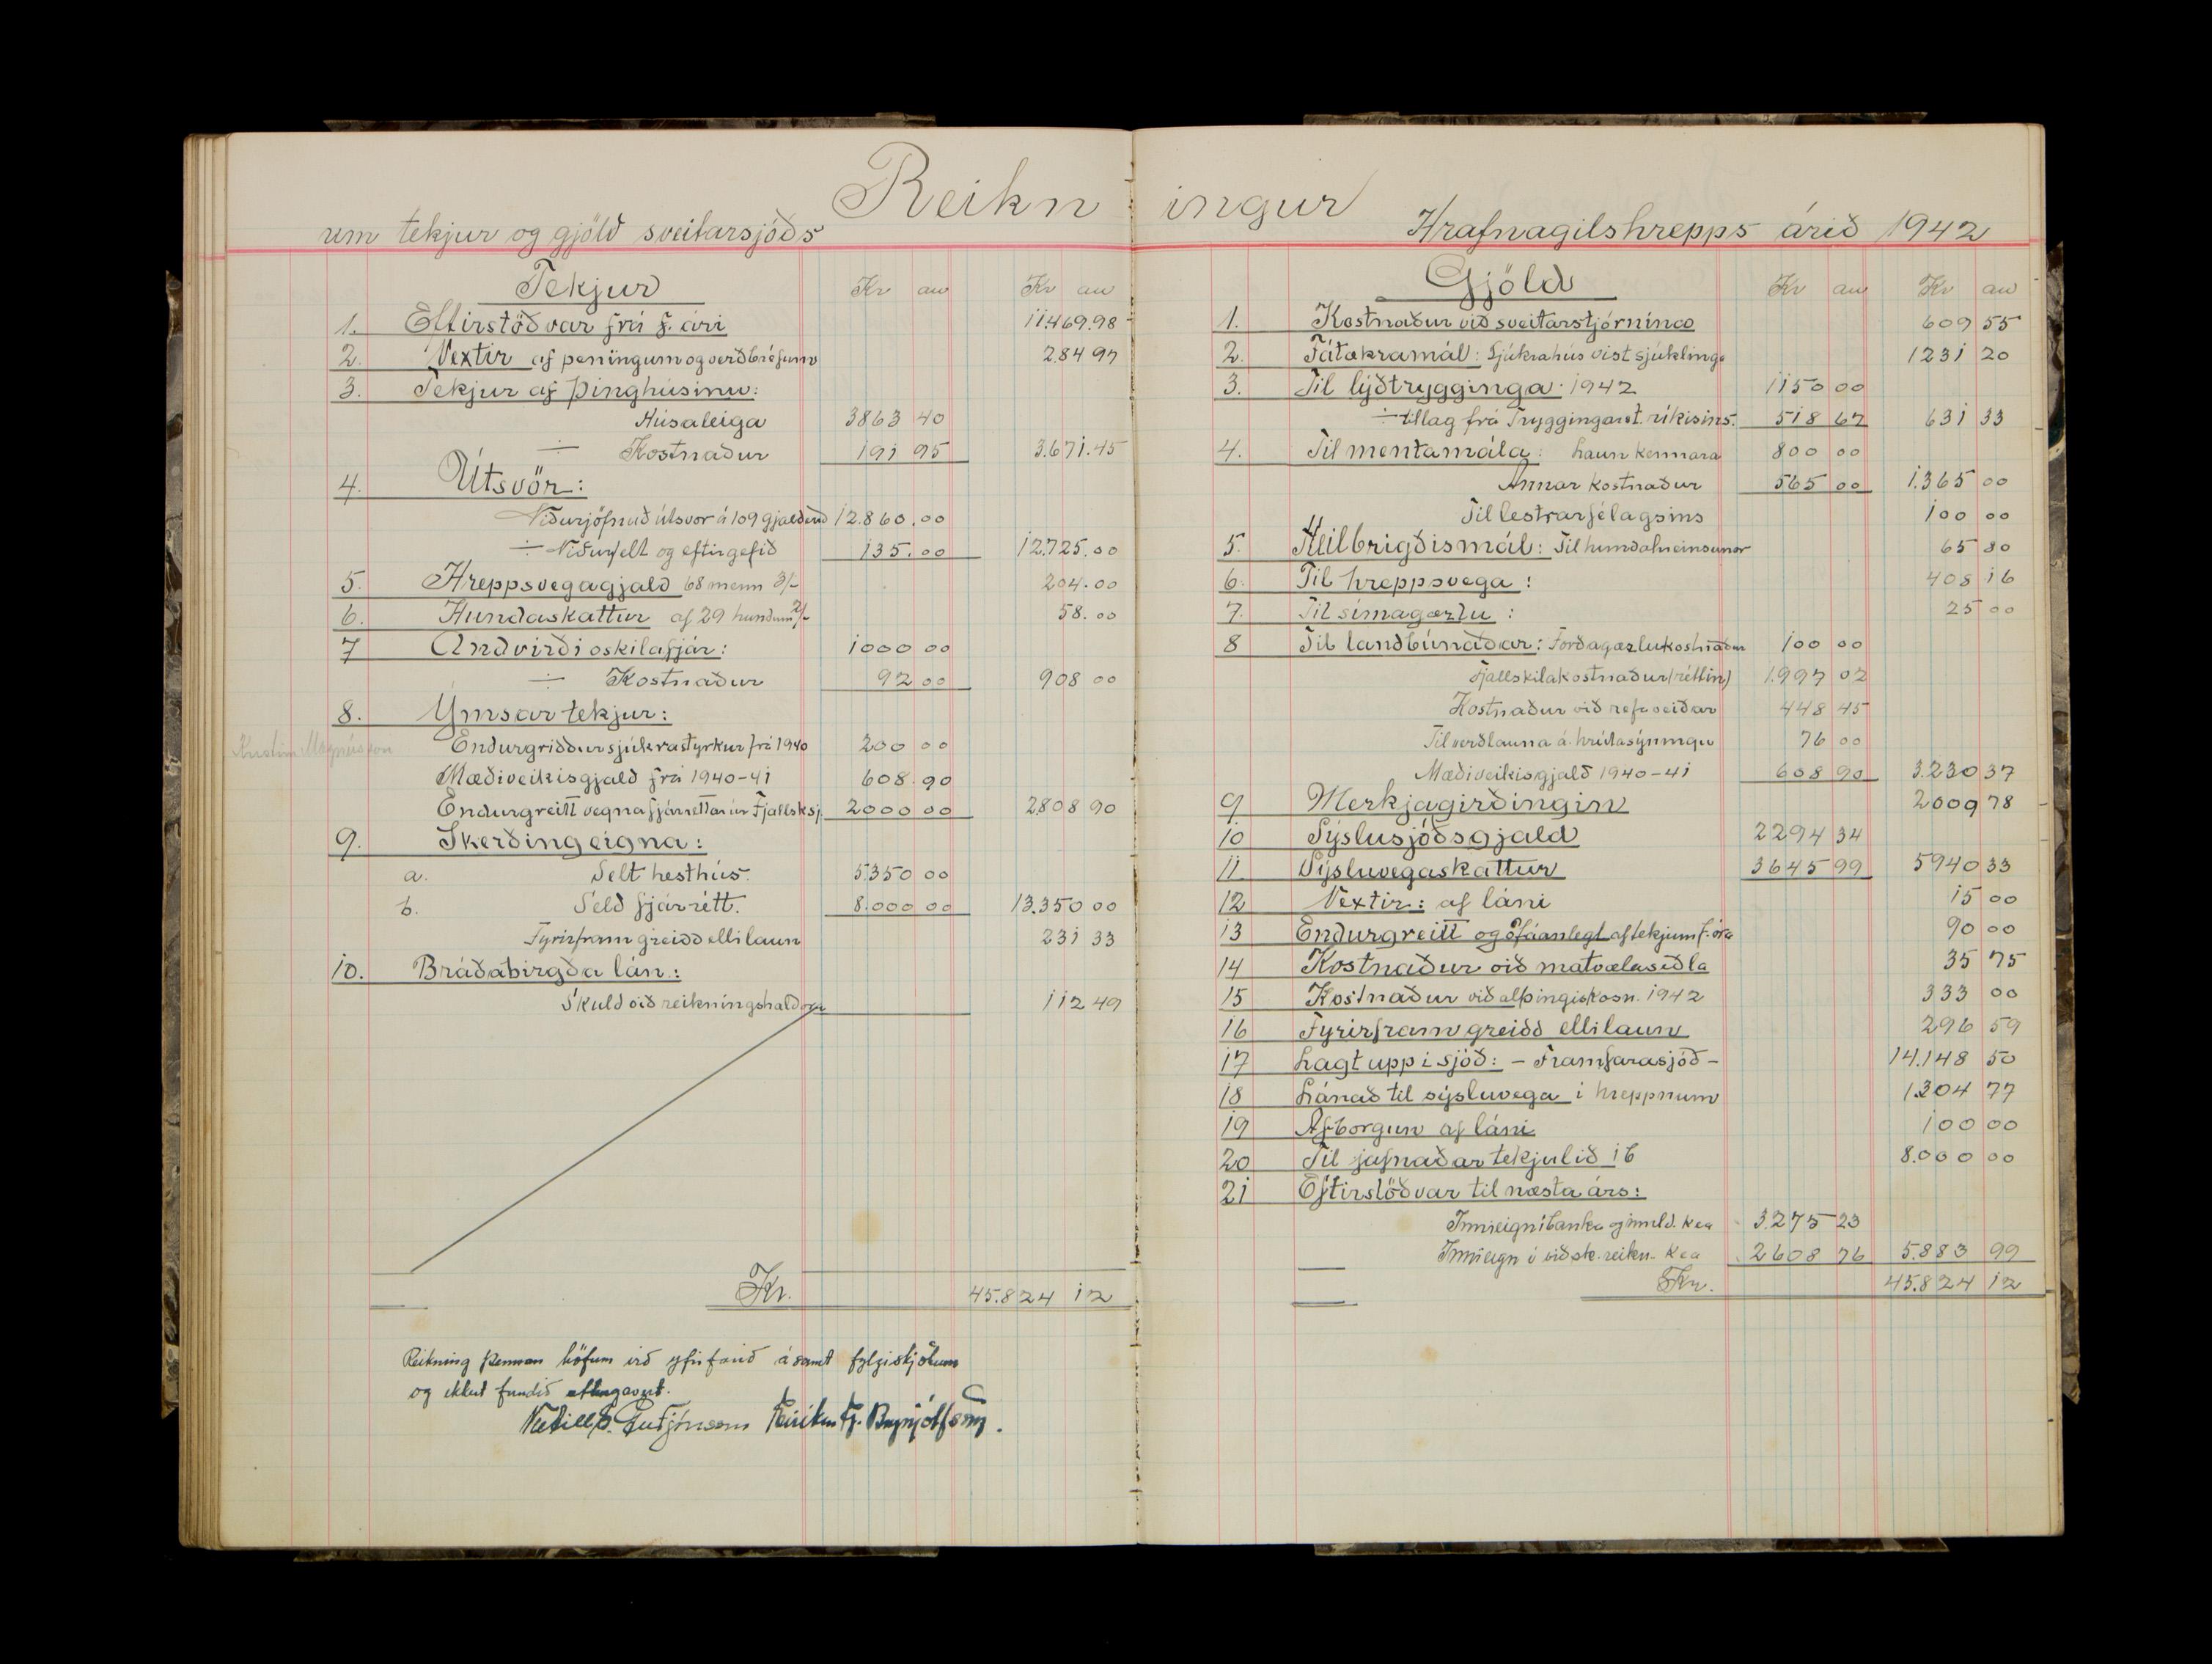 Reikningur
um tekjur og gjöld sveitarsjóðs Hrafnagilshrepps árið 1942
Tekjur Kr au Kr au
1. Eftirstöðvar frá f. ári 11.469.98
2. Vextir af peningum og verðbréfum 284 97
3. Tekjur af þinghúsinu:
Húsaleiga 3863 40
÷ Kostnaður 191 95 3.671.45
4. Útsvör:
Niðurjöfnuð útsvör á 109 gjaldend 12.860.00
÷ Niðurfelt og eftirgefið 135.00 12.725.00
5. Hreppsvegagjald 68 menn 3/- 204.00
6. Hundaskattur af 29 hundum 2/- 58.00
7 Andvirði oskilafjár: 1000 00
÷ Kostnaður 92 00 908 00
8. Ýmsar tekjur:
Magnússon Endurgriddur sjúkrastyrkur frá 1940 200 00
Mæðiveikisgjald frá 1940-41 608.90
Endurgreitt vegna fjárréttar úr Fjallsksj. 2000 00 2808 90
9. Skerðing eigna:
a. Selt hesthús. 5350 00
b. Seld fjárrétt. 8.000 00 13.350 00
Fyrirfram greidd ellilaun 231 33
10. Bráðabirgða lán:
Skuld við reikningshaldara 112 49
Kr. 45.824 12
Reikning þennan höfum við yfirfarið ásamt fylgiskjölum
og ekkert fundið athugavert.
Gjöld Kr au Kr au
1. Kostnaður við sveitarstjórnina 609 55
2. Fátækramál: Sjúkrahúsvist sjúklinga 1231 20
3. Til lýðtrygginga 1942 1150 00
÷ tillag frá Tryggingarst. ríkisins. 518 67 631 33
4. Til mentamála: Laun kennara 800 00
Annar kostnaður 565 00 1.365 00
Til lestrarfélagsins 100 00
5. Heilbrigðismál: Til hundahreinsunar 65 80
6. Til hreppsvega: 408 16
7. Til símagæzlu: 25 00
8 Til landbúnaðar: Forðagæzlukostnaður 100 00
Fjallskilakostnaður (réttin) 1.997 02
Kostnaður við refaveiðar 448 45
Til verðlauna á hrútasýningu 76 00
Mæðiveikisgjald 1940-41 608 90 3.230 37
9 Merkjagirðingin 2009 78
10 Sýslusjóðsgjald 2294 34
11 Sýsluvegaskattur 3645 99 5940 33
12 Vextir: af láni 15 00
13 Endurgreitt og ófáanlegt af tekjum f. ára 90 00
14 Kostnaður við matvælaseðla 35 75
15 Kostnaður við alþingiskosn. 1942 333 00
16 Fyrirfram greidd ellilaun 296 59
17 Lagt upp í sjóð: - Framfarasjóð - 14.148 50
18 Lánað til sýsluvega í hreppnum 1.204 77
19 Afborgun af láni 100 00
20 Til jafnaðar tekjulið 8.000 00
21 Eftirstöðvar til næsta árs:
Innieign í banka og innld. Kea 3.275 23
Innieign í viðsk. reikn. Kea 2608 76 5.883 99
Kr. 45.824 12